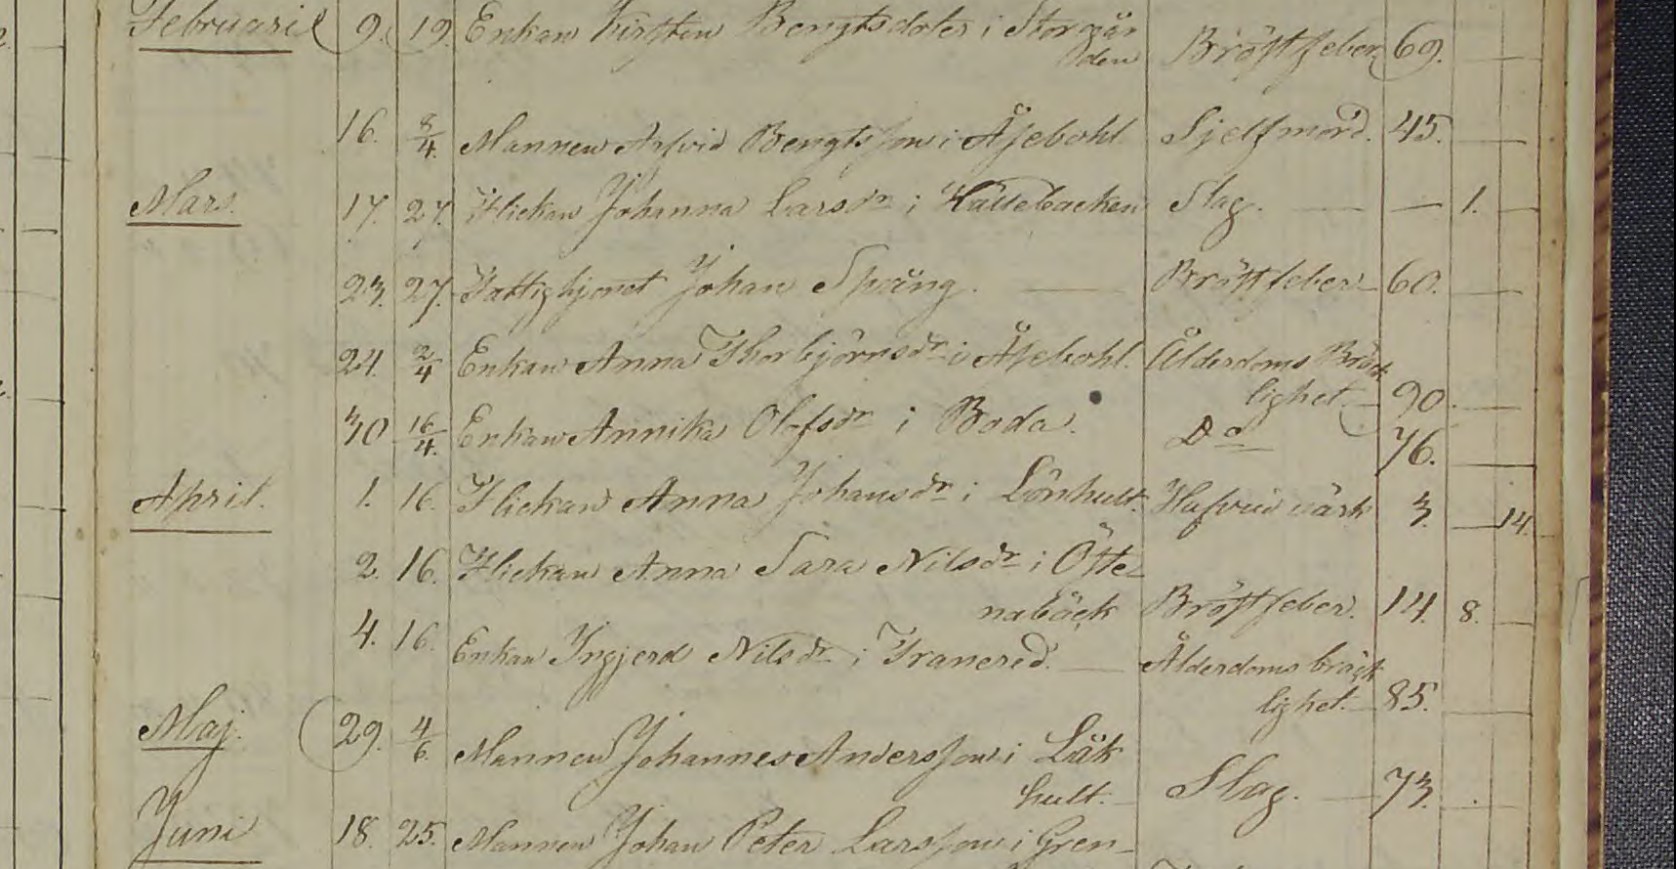 Februarii 9. 19. Enkan Kirsten Bengtsdoter i Storgår
den Bröstfeber 69.
16. 8/4 Mannen Arfvid Bengtsson i Åsebohl Sjelfmord. 45.
Mars. 17. 27. Flickan Johanna Larsdr i Hällebacken Slag. — — 1.
23. 27. Fattighjonet Johan Spräng. — Bröstfeber 60.
24. 2/4 Enkan Anna Thorbjörnsdr i Åsebohl. Ålderdoms Bräck
lighet. 90.
30 16/4. Enkan Annika Olofsdr i Boda. Do 76.
April. 1. 16. Flickan Anna Johansdr i Lönhult. Hufvudvärk 3. — 14.
2. 16. Flickan Anna Sara Nilsdr i Öfte-
nabäck Bröstfeber. 14. 8.
4. 16. Enkan Ingjerd Nilsdr i Tranered. — Ålderdoms bräck
lighet. 85.
Maj. 29. 4/6 Mannen Johannes Andersson i Läk
hult. Slag. 73.
Juni 18. 25. Mannen Johan Peter Larsson i Gren-